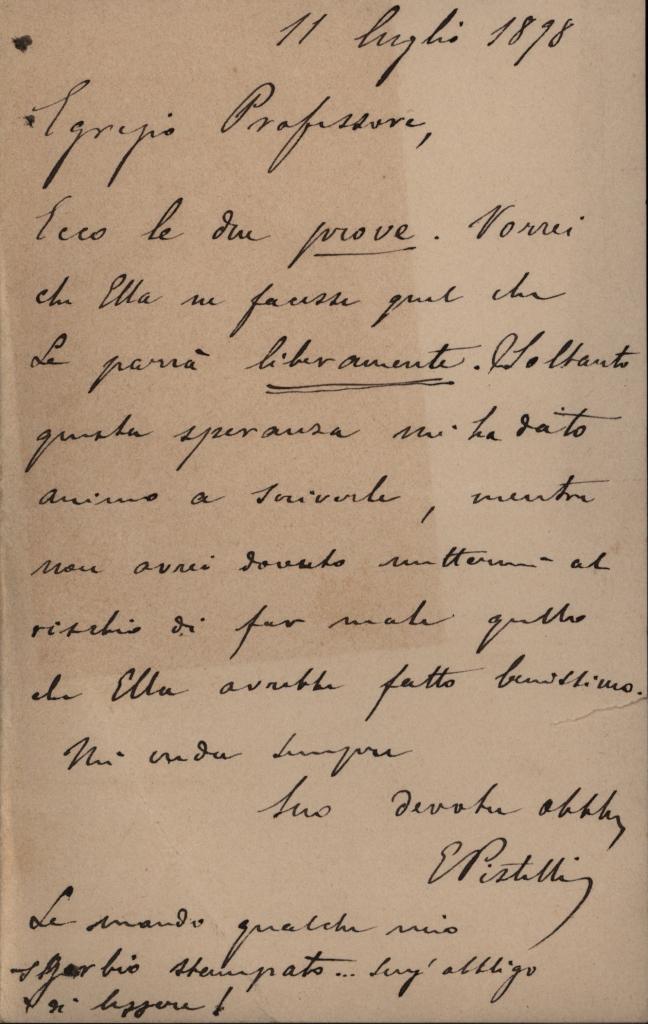 11 luglio 1898
Egregio Professore,
Ecco le due prove. Vorrei
che Ella ne facesse quel che
Le parrà liberamente. Soltanto
questa speranza mi ha dato
animo a scriverle, mentre
non avrei dovuto mettermi al
rischio di far male quello
che Ella avrebbe fatto benissimo.
Mi creda sempre
Suo devotu obbl
EPistelli
Le mando qualche mio
sgorbio stampato... senz' obbligo
di leggere!